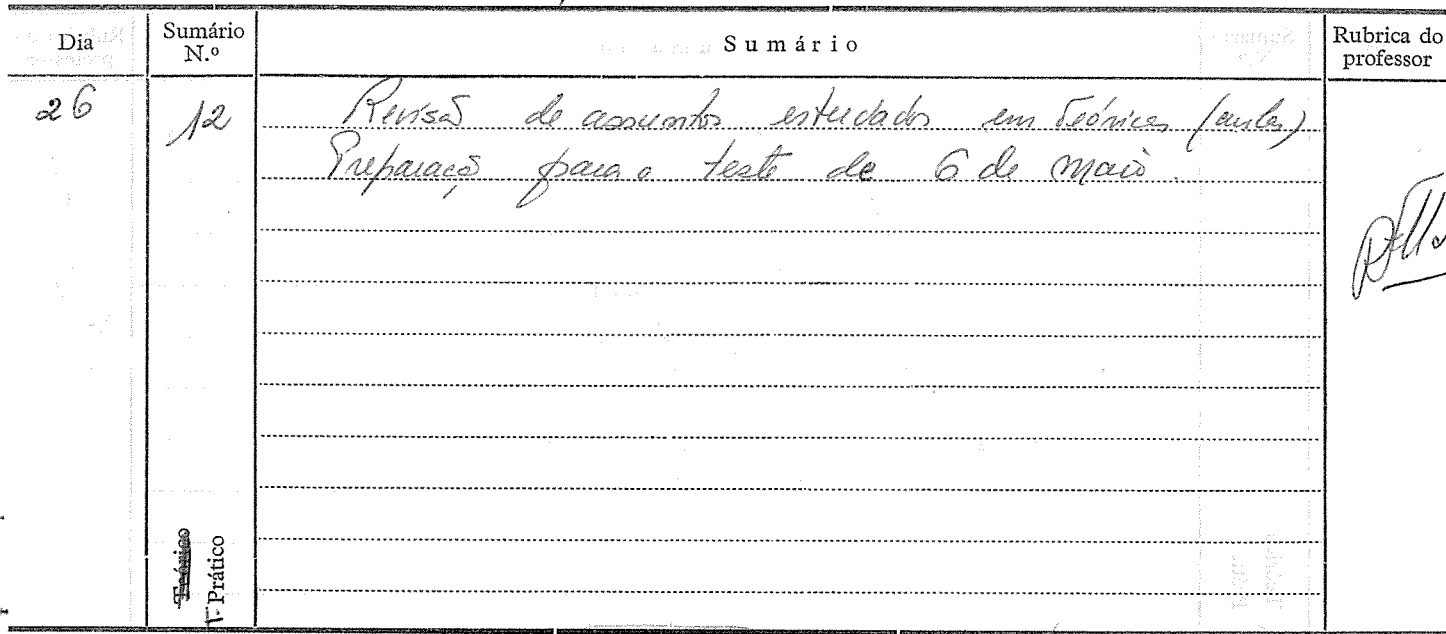 Dia
Sumário N.º
Sumário
Rubrica do professor
26
12
Revisão de assuntos estudados em Teóricas (aulas)
Preparação para o teste de 6 de maio.
Teórico
T-Prático